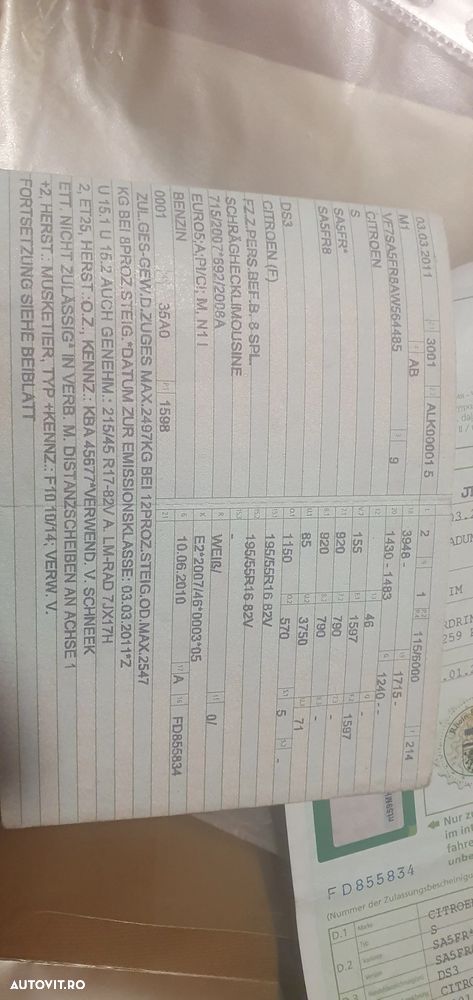 03.03.2011 3001 ALK00001 5
M1 AB
VF7SA5FR8AW564485 9
CITROEN
S
SA5FR*
SA5FR8
DS3
CITROEN (F)
FZ.Z.PERS.BEF.B. 8 SPL.
SCHRÄGHECKLIMOUSINE
715/2007*692/2008A
EURO5;A;PI/CI; M, N1 I
BENZIN
0001 35A0 1598
2 1 115/6000 214
3948 - 1715 -
1430 - 1483 1240 -
46
155 1597 1597
920 790 -
920 790 -
85 3750 71
1150 570 5 -
195/55R16 82V
195/55R16 82V
-
WEIß/ 0/
E2*2007/46*0003*05
10.06.2010 A FD855834
ZUL.GES-GEW.D.ZUGES MAX.2497KG BEI 12PROZ.STEIG.OD.MAX.2547
KG BEI 8PROZ.STEIG.*DATUM ZUR EMISSIONSKLASSE: 03.03.2011*Z
U 15.1 U 15.2 AUCH GENEHM.: 215/45 R17-82V A. LM-RAD 7JX17H
2, ET25, HERST.:O.Z., KENNZ.: KBA 45677*VERWEND. V. SCHNEEK
ETT. NICHT ZULÄSSIG* IN VERB. M. DISTANZSCHEIBEN AN ACHSE 1
+2, HERST.: MUSKETIER, TYP +KENNZ.: F10 10/14; VERW. V.
FORTSETZUNG SIEHE BEIBLATT
Nur zu
im int
fahre
unbe
FD855834
(Nummer der Zulassungsbescheinigung
D.1 Marke CITROEN
Typ S
D.2 SA5FR*
SA5FR8
DS3
CITRO
AUTOVIT.RO